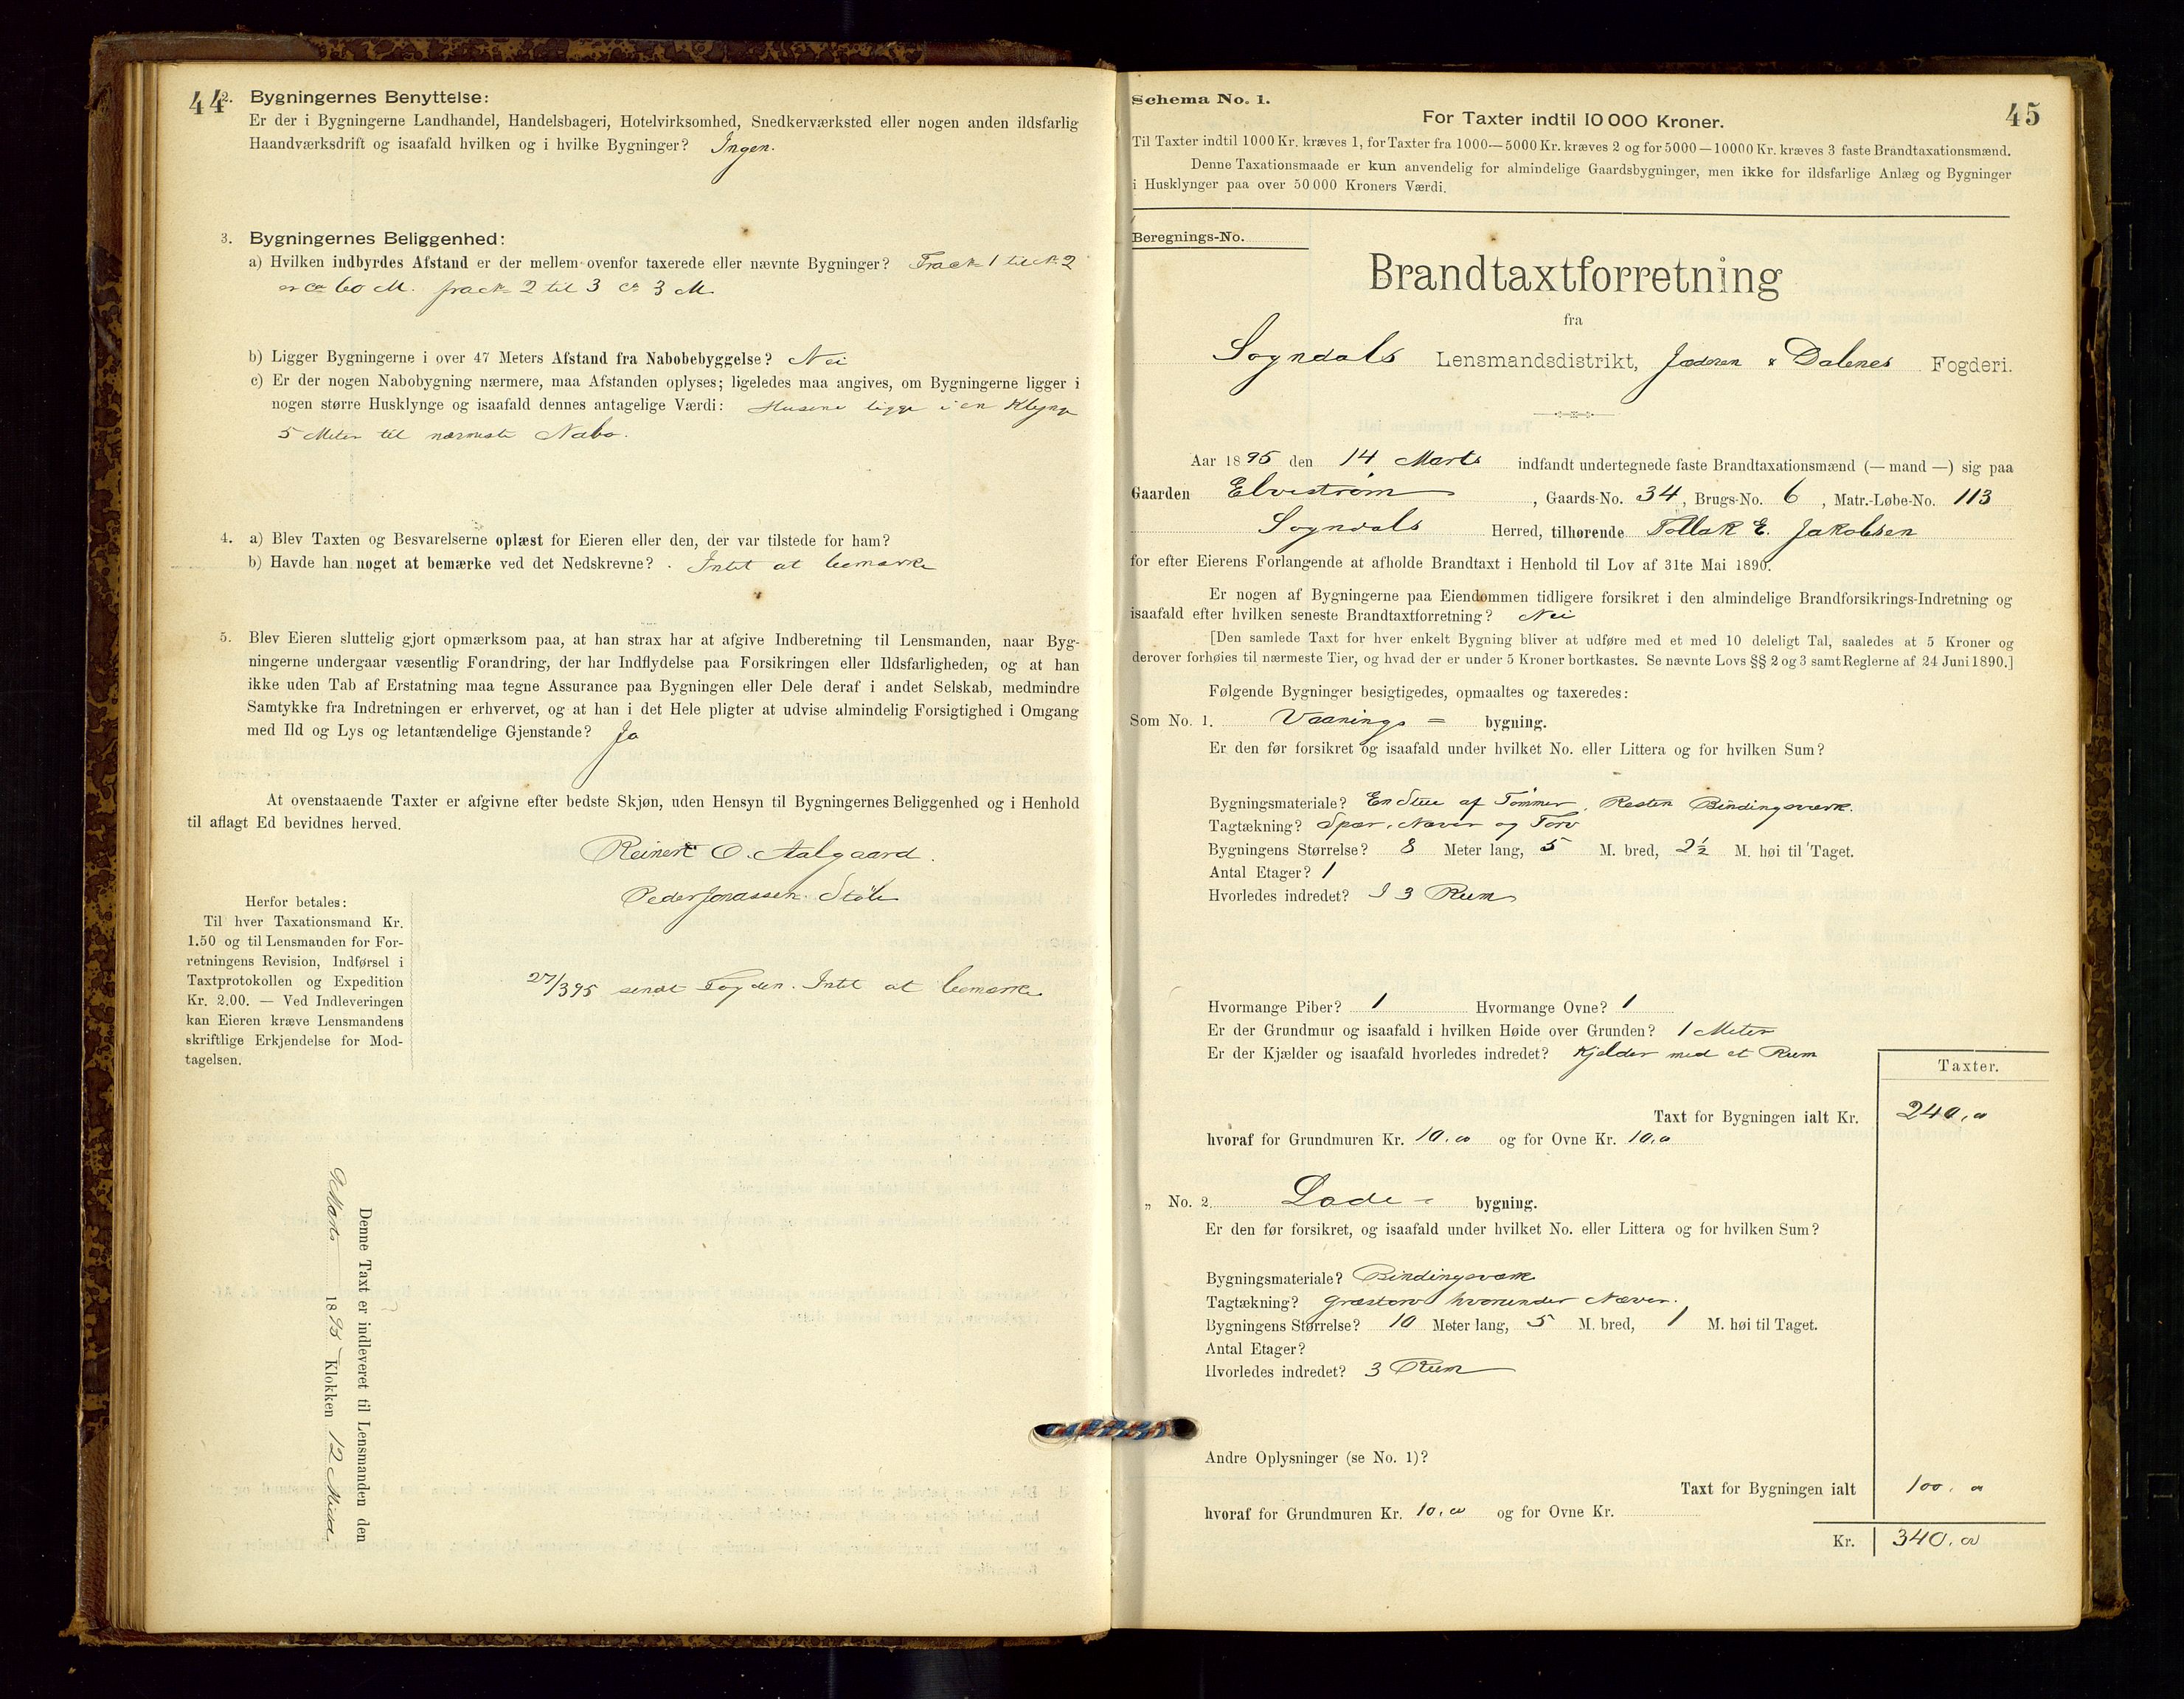 44
2. Bygningernes Benyttelse:
Er der i Bygningerne Landhandel, Handelsbageri, Hotelvirksomhed, Snedkerværksted eller nogen anden ildsfarlig
Haandværksdrift og isaafald hvilken og i hvilke Bygninger? Ingen.
3. Bygningernes Beliggenhed:
a) Hvilken indbyrdes Afstand er der mellem ovenfor taxerede eller nævnte Bygninger? Fra № 1 til № 2
er ca 60 M. fra № 2 til 3 ca 3 M
b) Ligger Bygningerne i over 47 Meters Afstand fra Nabobebyggelse? Nei
c) Er der nogen Nabobygning nærmere, maa Afstanden oplyses; ligeledes maa angives, om Bygningerne ligger i
nogen større Husklynge og isaafald dennes antagelige Værdi: Husene ligge i en Klynge
5 Meter til nærmeste Nabo.
4. a) Blev Taxten og Besvarelserne oplæst for Eieren eller den, der var tilstede for ham?
b) Havde han noget at bemærke ved det Nedskrevne? Intet at bemærke
5. Blev Eieren sluttelig gjort opmærksom paa, at han strax har at afgive Indberetning til Lensmanden, naar Byg-
ningerne undergaar væsentlig Forandring, der har Indflydelse paa Forsikringen eller Ildsfarligheden, og at han
ikke uden Tab af Erstatning maa tegne Assurance paa Bygningen eller Dele deraf i andet Selskab, medmindre
Samtykke fra Indretningen er erhvervet, og at han i det Hele pligter at udvise almindelig Forsigtighed i Omgang
med Ild og Lys og letantændelige Gjenstande? Ja
At ovenstaaende Taxter er afgivne efter bedste Skjøn, uden Hensyn til Bygningernes Beliggenhed og i Henhold
til aflagt Ed bevidnes herved.
Reinert O. Aalgaard.
Peder Jonassen Støle
Herfor betales:
Til hver Taxationsmand Kr.
1.50 og til Lensmanden for For-
retningens Revision, Indførsel i
Taxtprotokollen og Expedition
Kr. 2.00. — Ved Indleveringen
kan Eieren kræve Lensmandens
skriftlige Erkjendelse for Mod-
tagelsen.
27/3 95 sendt Fogden. Intet at bemærke
Denne Taxt er indleveret til Lensmanden den
Marts 1895 Klokken 12 Midd.
Schema No. 1.
45
For Taxter indtil 10 000 Kroner.
Til Taxter indtil 1000 Kr. kræves 1, for Taxter fra 1000—5000 Kr. kræves 2 og for 5000—10000 Kr. kræves 3 faste Brandtaxationsmænd.
Denne Taxationsmaade er kun anvendelig for almindelige Gaardsbygninger, men ikke for ildsfarlige Anlæg og Bygninger
i Husklynger paa over 50 000 Kroners Værdi.
Beregnings-No.
Brandtaxtforretning
fra
Sogndals Lensmandsdistrikt, Jæderen & Dalenes Fogderi.
Aar 1895 den 14 Marts indfandt undertegnede faste Brandtaxationsmænd (— mand —) sig paa
Gaarden Elvestrøm, Gaards-No. 34, Brugs-No. 6, Matr.-Løbe-No. 113
Sogndals Herred, tilhørende Tollak E. Jakobsen
for efter Eierens Forlangende at afholde Brandtaxt i Henhold til Lov af 31te Mai 1890.
Er nogen af Bygningerne paa Eiendommen tidligere forsikret i den almindelige Brandforsikrings-Indretning og
isaafald efter hvilken seneste Brandtaxtforretning? Nei
[Den samlede Taxt for hver enkelt Bygning bliver at udføre med et med 10 deleligt Tal, saaledes at 5 Kroner og
derover forhøies til nærmeste Tier, og hvad der er under 5 Kroner bortkastes. Se nævnte Lovs §§ 2 og 3 samt Reglerne af 24 Juni 1890.]
Følgende Bygninger besigtigedes, opmaaltes og taxeredes:
Som No. 1. Vaanings = bygning.
Er den før forsikret og isaafald under hvilket No. eller Littera og for hvilken Sum?
Bygningsmateriale? En Stue af Tømmer, Resten Bindingsværk.
Tagtækning? Spær, Næver og Torv
Bygningens Størrelse? 8 Meter lang, 5 M. bred, 2½ M. høi til Taget.
Antal Etager? 1
Hvorledes indredet? I 3 Rum
Hvormange Piber? 1 Hvormange Ovne? 1
Er der Grundmur og isaafald i hvilken Høide over Grunden? 1 Meter
Er der Kjælder og isaafald hvorledes indredet? Kjelder med et Rum
Taxter.
Taxt for Bygningen ialt Kr. 240,00
hvoraf for Grundmuren Kr. 10,00 og for Ovne Kr. 10,00
„ No. 2. Lade - bygning.
Er den før forsikret, og isaafald under hvilket No. eller Littera og for hvilken Sum?
Bygningsmateriale? Bindingsværk
Tagtækning? græstorv hvorunder Næver.
Bygningens Størrelse? 10 Meter lang, 5 M. bred, 1 M. høi til Taget.
Antal Etager?
Hvorledes indredet? 3 Rum
Andre Oplysninger (se No. 1)?
Taxt for Bygningen ialt 100,00
hvoraf for Grundmuren Kr. 10,00 og for Ovne Kr.
Kr. 340,00